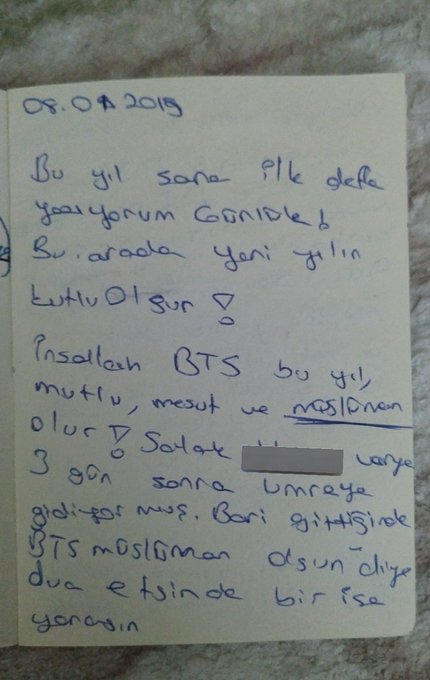 08.01 2019
Bu yıl sana ilk defa
yazıyorum Günlük!
Bu arada yeni yılın
kutlu Olsun!
İnşallah BTS bu yıl,
mutlu, mesut ve müslüman
olur! Salak varya
3 gün sonra umreye
gidiyor muş. Bari gittiğinde
BTS müslüman olsun diye
dua etsinde bir işe
yarasın